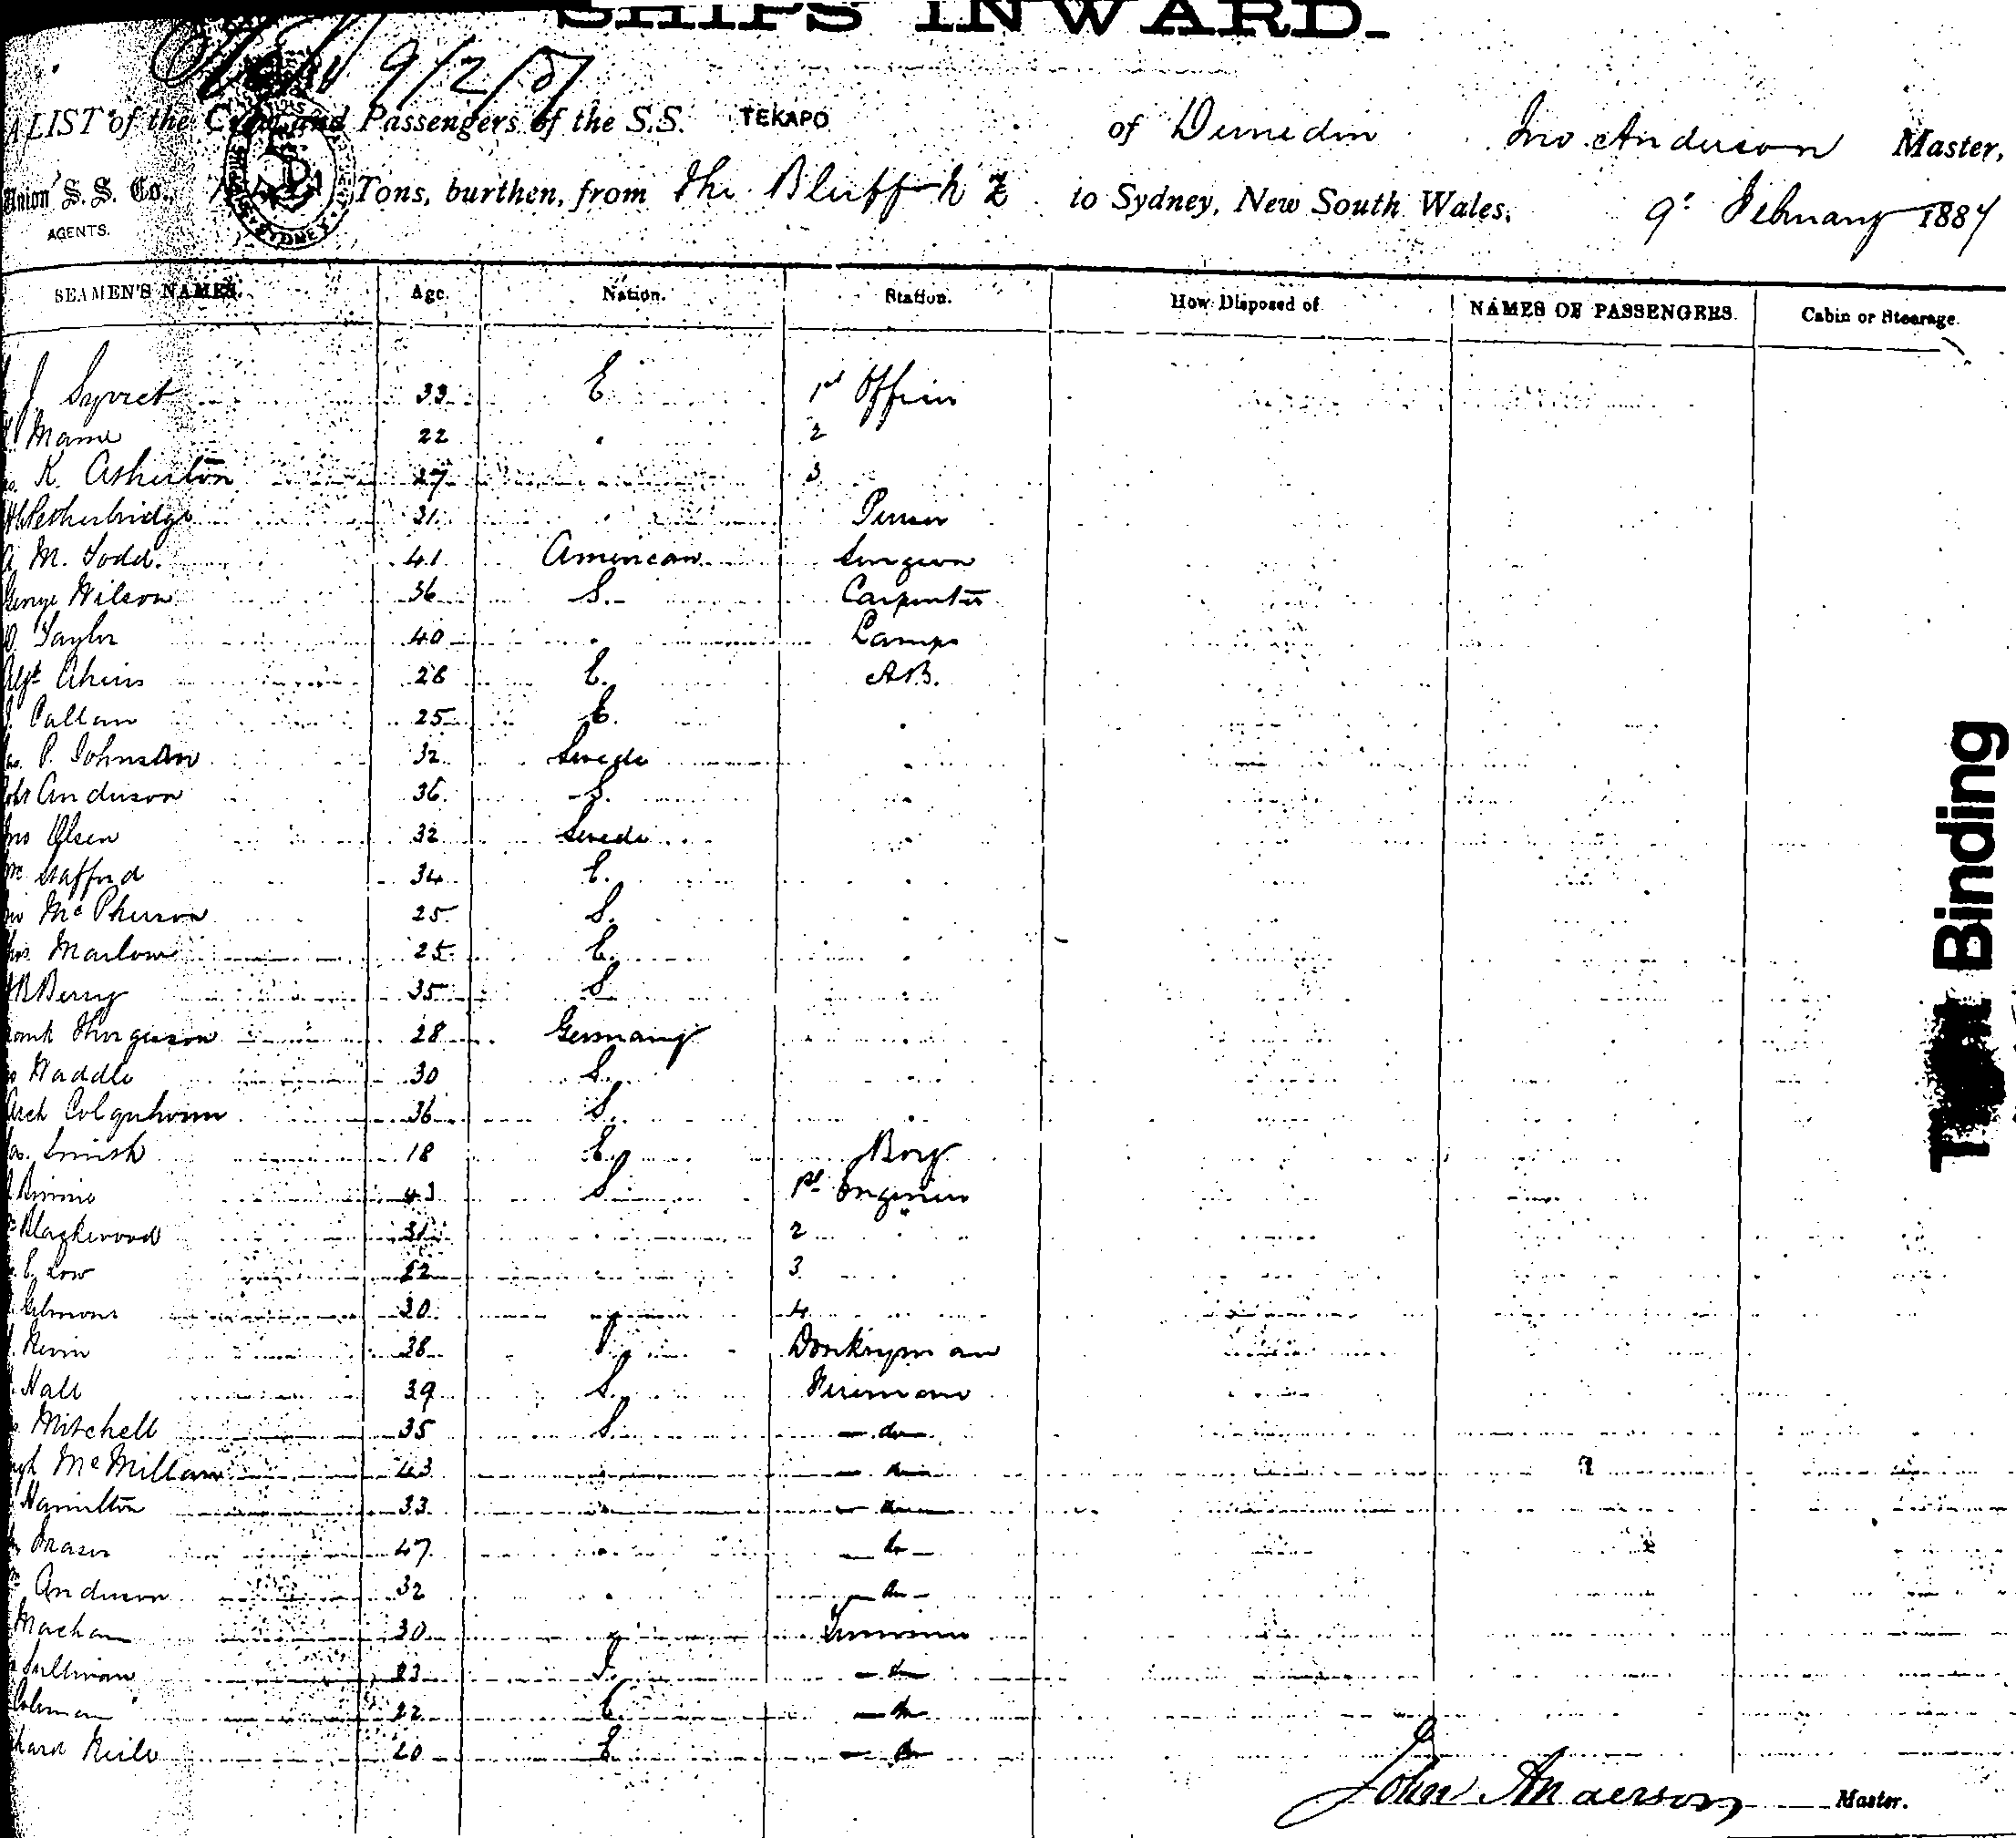 SHIPS INWARD.
9/2/87
A LIST of the Crew and Passengers of the S.S. TEKAPO of Dunedin Jno Anderson Master,
Union S. S. Co., Tons, burthen, from the Bluff N Z to Sydney, New South Wales, 9: February 1887
AGENTS.
SYDNEY
SEAMEN'S NAMES. Age. Nation. Station. How Disposed of NAMES OF PASSENGERS. Cabin or Steerage.
J. Syvret 33 E 1st Officer
22 " 2
K. Asherton 27 3
Petherbridge 31 " Purser
A M. Todd. 41 American Surgeon
George Wilson 36 S. Carpenter
Taylor 40 " Lamps
Alf. 26 E. A.B.
Callan 25 E. "
P. Johnson 32 Swede "
Anderson 36. S. "
Jno Olsen 32 Swede "
Wm Stafford 34 E. "
McPherson 25 S. "
Marlow 25 E. "
Berry 35 S "
28 Germany "
Waddle 30 S. "
Arch Colquhoun 36 S. "
Jas. Smith 18 E. Boy
Binnie 43 S 1st Engineer
Blackwood 31 " 2 "
E. Low 22 " 3
30 " 4
38 Donkeyman
Hall 39 S. Fireman
Mitchell 35 S. – do –
McMillan 43 " – do –
Hamilton 33 " – do –
Fraser 47 " – do –
Wm Anderson 32 " – do –
30 Trimmer
Sullivan 23 – do –
Coleman 22 E. – do –
20 E – do –
John Anderson Master.
Binding